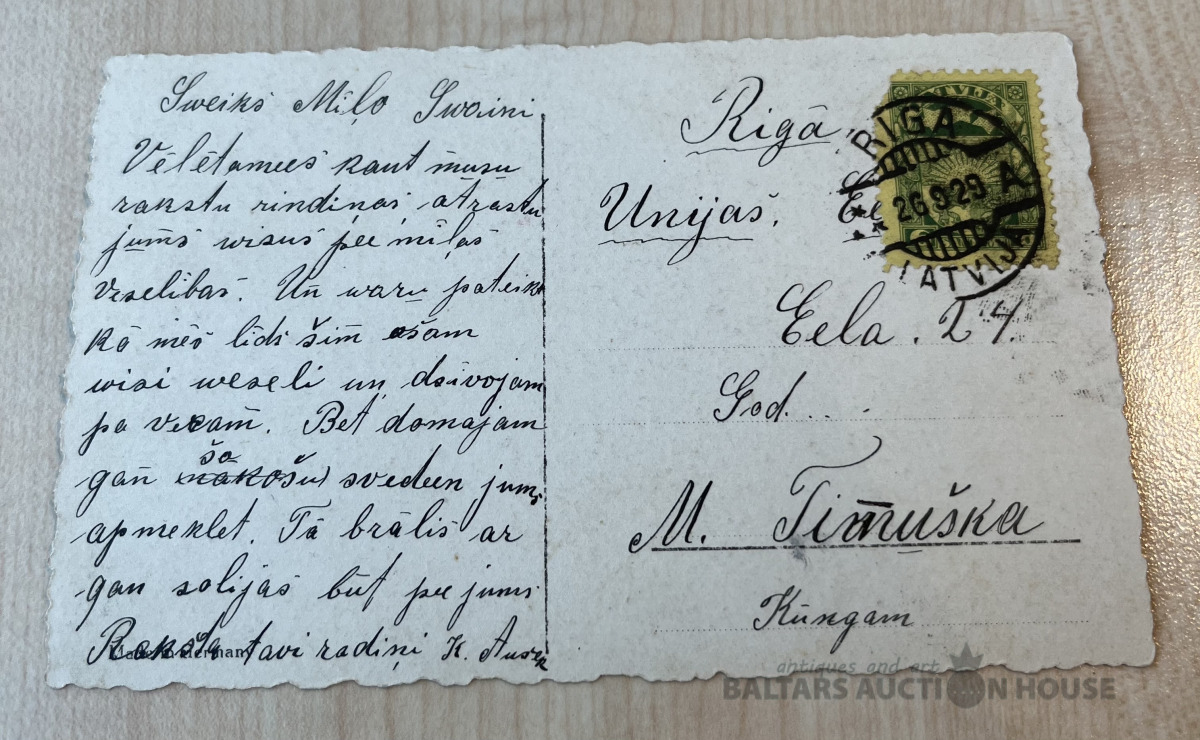 Sweiks Miļo Swaini
Vēlētamees kaut mūsu
rakstu rindiņas atrastu
jums wisus pee mīļas
veselības. Un waru pateikt
kā mēs līds šim ešam
wisi weseli un dsīvojam
pa vecam. Bet domājam
gan šo
nākošu svedeen jums
apmeklet. Tā brālis ar
gan solijās būt pee jums
Raksta tavi radiņi K.
Rigā
Unijas.
Eela. 24.
God...
M. Timuška
Kungam
LATVIJA
RIGA
26.9.29 A
LATVIJA
antiques and art
BALTARS AUCTION HOUSE